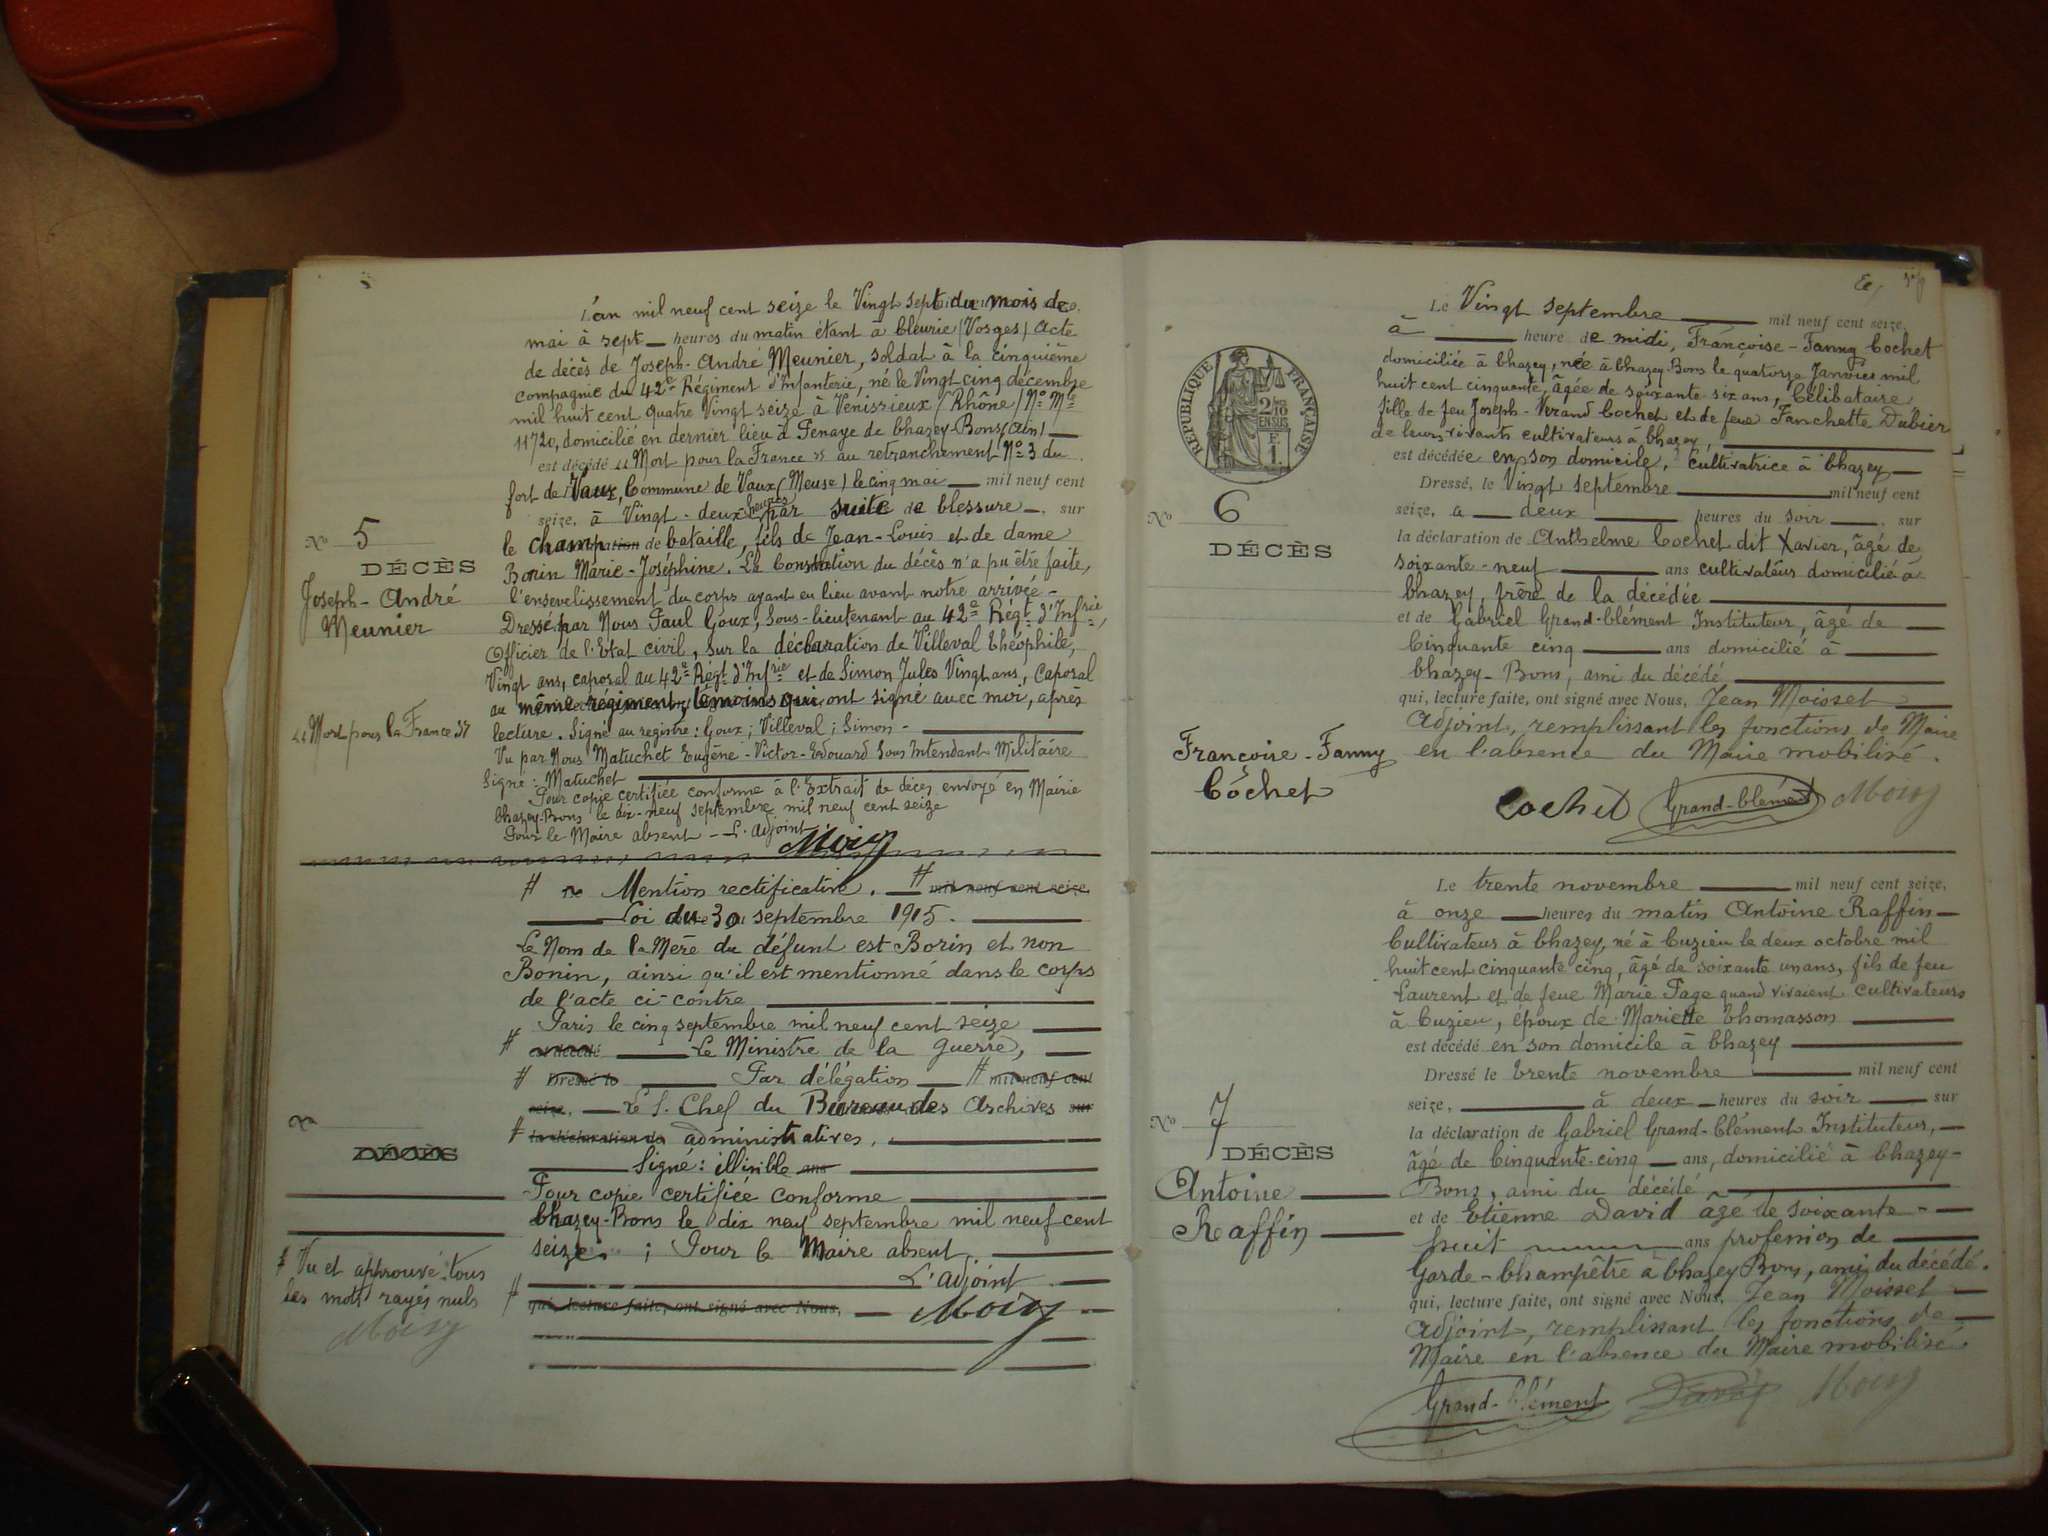 5
L'an mil neuf cent seize le Vingt sept du mois de
mai à sept heures du matin étant à Cleurie (Vosges) Acte
de décès de Joseph-André Meunier, soldat à la cinquième
compagnie du 42e Régiment d'Infanterie, né le Vingt cinq décembre
mil huit cent quatre Vingt seize à Venissieux (Rhône) No Mle
11720, domicilié en dernier lieu à Penaye de Chazey-Bons (Ain)
est décédé "Mort pour la France" au retranchement No 3 du
fort de Vaux, Commune de Vaux (Meuse) le cinq mai mil neuf cent
seize, à Vingt-deux heures par suite de blessure, sur
le champ de bataille, fils de Jean-Louis et de dame
Bonin Marie-Joséphine. La Constation du décès n'a pu être faite,
l'ensevelissement du corps ayant eu lieu avant notre arrivée -
Dressé par Nous Paul Goux, Sous-lieutenant au 42e Régt d'Infrie,
Officier de l'Etat civil, sur la déclaration de Villeval Théophile,
Vingt ans, caporal au 42e Régt d'Infrie et de Simon Jules Vingt ans, Caporal
au même régiment, témoins qui ont signé avec moi, après
lecture. Signé au registre: Goux; Villeval; Simon -
Vu par Nous Matuchet Eugène-Victor-Edouard Sous Intendant Militaire
Signé: Matuchet
Pour copie certifiée conforme à l'Extrait de décès envoyé en Mairie
Chazey-Bons le dix-neuf septembre mil neuf cent seize
Pour le Maire absent - L'adjoint
No 5
DÉCÈS
Joseph-André
Meunier
"Mort pour la France"
# Mention rectificative. # mil neuf cent seize
Loi du 30 septembre 1915.
Le Nom de la Mère du défunt est Borin et non
Bonin, ainsi qu'il est mentionné dans le corps
de l'acte ci-contre
Paris le cinq septembre mil neuf cent seize
# est décédé Le Ministre de la Guerre,
# Dressé le Par délégation # mil neuf cent
seize, Le S. Chef du Bureau des Archives sur
# la déclaration de administratives,
Signé: illisible ans
Pour copie certifiée conforme
Chazey-Bons le dix neuf septembre mil neuf cent
seize; Pour le Maire absent,
L'adjoint
# qui, lecture faite, ont signé avec Nous,
No
DÉCÈS
# Vu et approuvé tous
les mots rayés nuls
RÉPUBLIQUE FRANÇAISE
2/10
EN SUS
Le Vingt septembre mil neuf cent seize,
à heure de midi, Françoise-Fanny Cochet
domiciliée à Chazey, née à Chazey-Bons le quatorze Janvier mil
huit cent cinquante, âgée de soixante-six ans, Célibataire
fille de feu Joseph-Vérand Cochet et de feue Fanchette Dubier
de leurs vivants cultivateurs à Chazey,
est décédée en son domicile, cultivatrice à Chazey
Dressé, le Vingt septembre mil neuf cent
seize, à deux heures du soir, sur
la déclaration de Anthelme Cochet dit Xavier, âgé de
soixante-neuf ans cultivateur domicilié à
Chazey, frère de la décédée
et de Gabriel Grand-Clément Instituteur, âgé de
Cinquante cinq ans domicilié à
Chazey-Bons, ami du décédé
qui, lecture faite, ont signé avec Nous, Jean Moisset
Adjoint, remplissant les fonctions de Maire
en l'absence du Maire mobilisé.
No 6
DÉCÈS
Françoise-Fanny
Cochet
Cochet Grand-Clément
Le trente novembre mil neuf cent seize,
à onze heures du matin Antoine Raffin
Cultivateur à Chazey, né à Cuzieu le deux octobre mil
huit cent cinquante cinq, âgé de soixante un ans, fils de feu
Laurent et de feue Marie Fage quand vivaient cultivateurs
à Cuzieu, époux de Mariette Thomasson
est décédé en son domicile à Chazey
Dressé le trente novembre mil neuf cent
seize, à deux heures du soir sur
la déclaration de Gabriel Grand-Clément Instituteur,
âgé de Cinquante-cinq ans, domicilié à Chazey-
Bons, ami du décédé
et de Etienne David âgé de soixante-
huit ans profession de
Garde-Champêtre à Chazey Bons, ami du décédé.
qui, lecture faite, ont signé avec Nous, Jean Moisset
Adjoint, remplissant les fonctions de
Maire en l'absence du Maire mobilisé.
No 7
DÉCÈS
Antoine
Raffin
Grand-Clément David